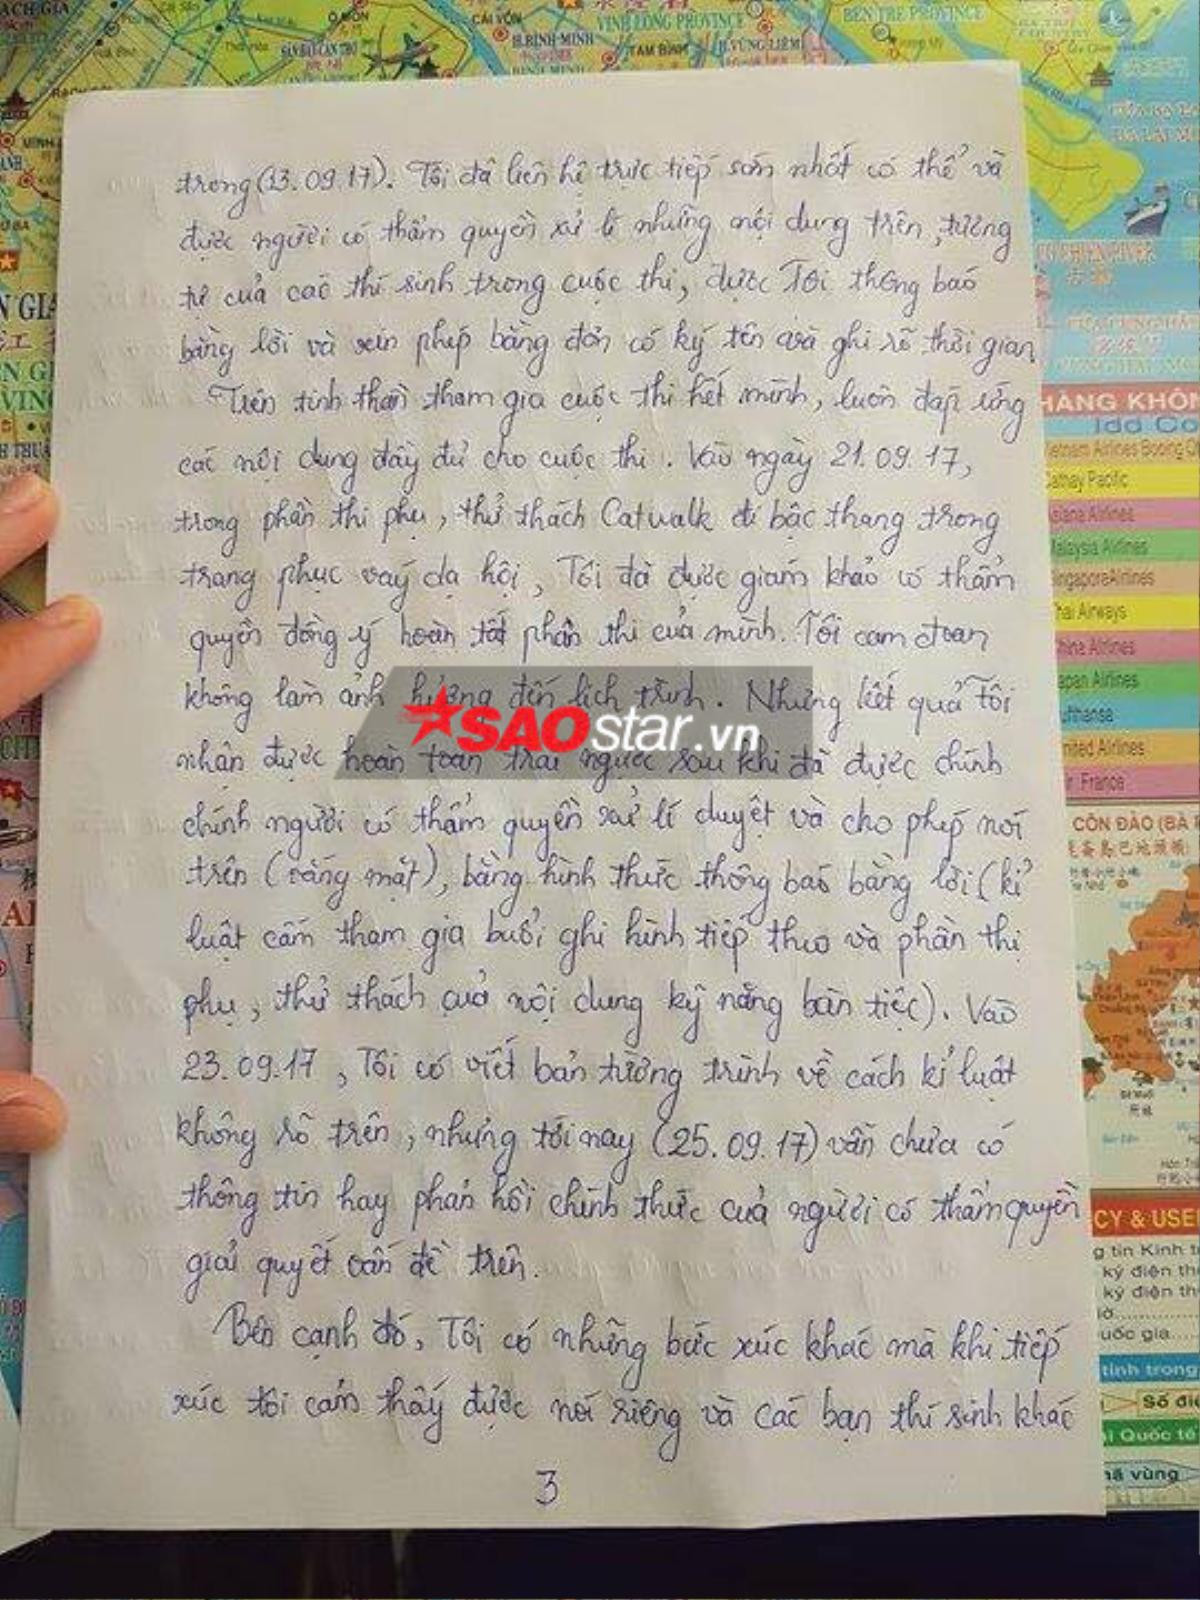 trong (13.09.17). Tôi đã liên hệ trực tiếp sớm nhất có thể và
được người có thẩm quyền xử lí những nội dung trên, tương
tự của các thí sinh trong cuộc thi, được Tôi thông báo
bằng lời và xin phép bằng đơn có ký tên và ghi rõ thời gian
Trên tinh thần tham gia cuộc thi hết mình, luôn đáp ứng
các nội dung đầy đủ cho cuộc thi. Vào ngày 21.09.17,
trong phần thi phụ, thử thách Catwalk đi bậc thang trong
trang phục váy dạ hội, Tôi đã được giám khảo có thẩm
quyền đồng ý hoàn tất phần thi của mình. Tôi cam đoan
không làm ảnh hưởng đến lịch trình. Nhưng kết quả Tôi
nhận được hoàn toàn trái ngược sau khi đã được chính
chính người có thẩm quyền xử lí duyệt và cho phép nói
trên (vắng mặt), bằng hình thức thông báo bằng lời (kỉ
luật cấm tham gia buổi ghi hình tiếp theo và phần thi
phụ, thử thách của nội dung kỹ năng bàn tiệc). Vào
23.09.17, Tôi có viết bản tường trình về cách kỉ luật
không rõ trên, nhưng tới nay (25.09.17) vẫn chưa có
thông tin hay phản hồi chính thức của người có thẩm quyền
giải quyết vấn đề trên.
Bên cạnh đó, Tôi có những bức xúc khác mà khi tiếp
xúc tôi cảm thấy được nói riêng và các bạn thí sinh khác
3
SAOstar.vn
VINH LONG PROVINCE
BEN TRE PROVINCE
CÁI VỒN
H.BÌNH MINH
TAM BÌNH
H.VŨNG LIÊM
HÀNG KHÔN
Idd Co
Vietnam Airlines Booing O
Cathay Pacific
Asiana Airlines
Malaysia Airlines
Singapore Airlines
Thai Airways
China Airlines
Japan Airlines
Lufthansa
United Airlines
Air France
CÔN ĐẢO (BÀ R
CY & USE
g tin Kinh t
ký điện th
ký điện th
uốc gia
tỉnh trong
Số điệ
i Quốc tế
mã vùng